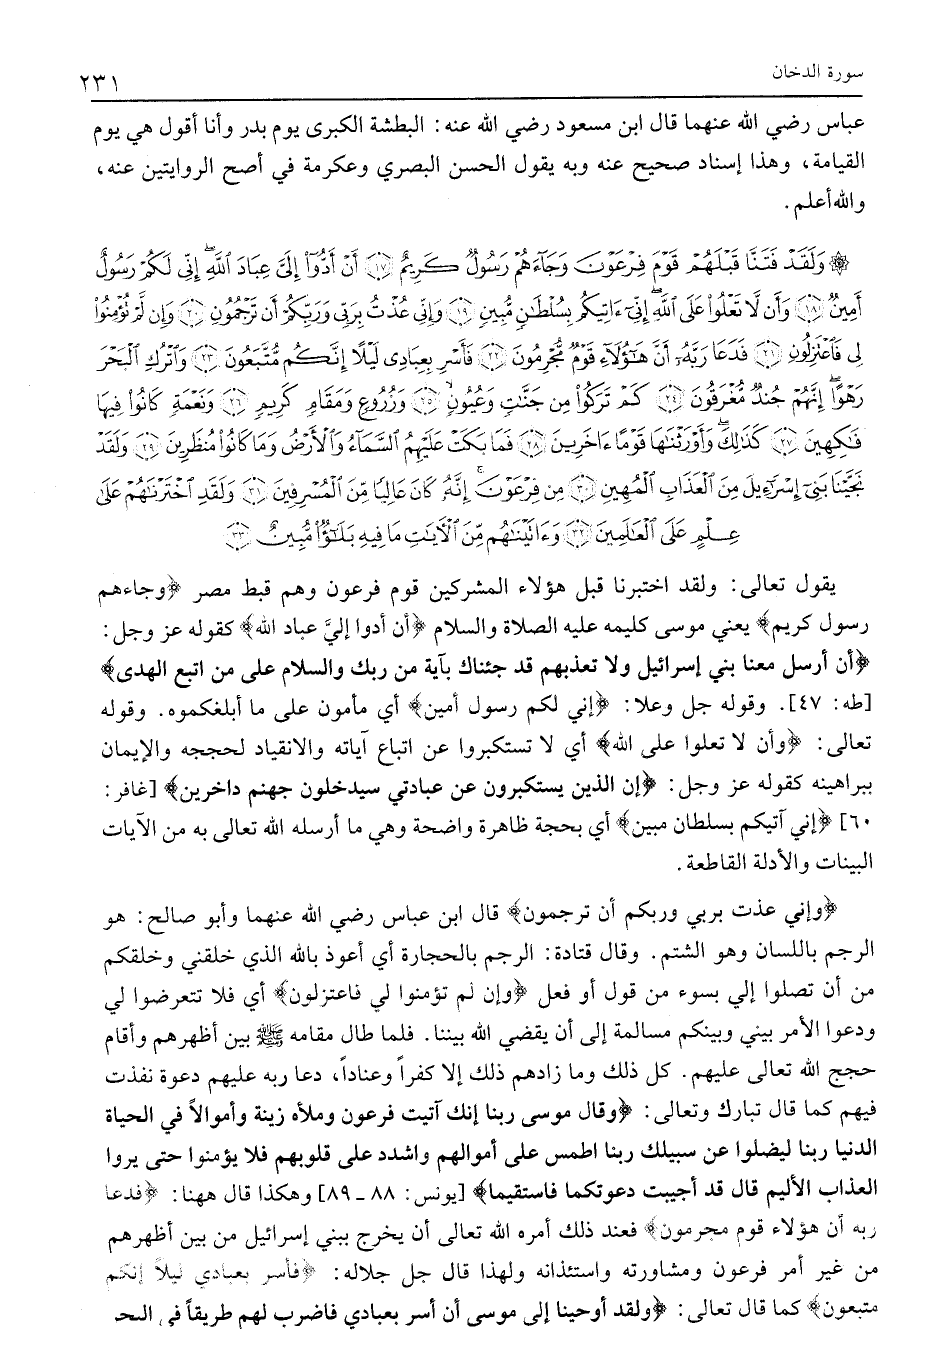 سورة الدخان
٢٣١
عباس رضي الله عنهما قال ابن مسعود رضي الله عنه: البطشة الكبرى يوم بدر وأنا أقول هي يوم
القيامة، وهذا إسناد صحيح عنه وبه يقول الحسن البصري وعكرمة في أصح الروايتين عنه،
والله أعلم.
۞ وَلَقَدْ فَتَنَّا قَبْلَهُمْ قَوْمَ فِرْعَوْنَ وَجَآءَهُمْ رَسُولٌ كَرِيمٌ ﴿١٧﴾ أَنْ أَدُّوٓا۟ إِلَىَّ عِبَادَ ٱللَّهِ ۖ إِنِّى لَكُمْ رَسُولٌ
أَمِينٌ ﴿١٨﴾ وَأَن لَّا تَعْلُوا۟ عَلَى ٱللَّهِ ۖ إِنِّىٓ ءَاتِيكُم بِسُلْطَٰنٍ مُّبِينٍ ﴿١٩﴾ وَإِنِّى عُذْتُ بِرَبِّى وَرَبِّكُمْ أَن تَرْجُمُونِ ﴿٢٠﴾ وَإِن لَّمْ تُؤْمِنُوا۟
لِى فَٱعْتَزِلُونِ ﴿٢١﴾ فَدَعَا رَبَّهُۥٓ أَنَّ هَٰٓؤُلَآءِ قَوْمٌ مُّجْرِمُونَ ﴿٢٢﴾ فَأَسْرِ بِعِبَادِى لَيْلًا إِنَّكُم مُّتَّبَعُونَ ﴿٢٣﴾ وَٱتْرُكِ ٱلْبَحْرَ
رَهْوًا ۖ إِنَّهُمْ جُندٌ مُّغْرَقُونَ ﴿٢٤﴾ كَمْ تَرَكُوا۟ مِن جَنَّٰتٍ وَعُيُونٍ ﴿٢٥﴾ وَزُرُوعٍ وَمَقَامٍ كَرِيمٍ ﴿٢٦﴾ وَنَعْمَةٍ كَانُوا۟ فِيهَا
فَٰكِهِينَ ﴿٢٧﴾ كَذَٰلِكَ ۖ وَأَوْرَثْنَٰهَا قَوْمًا ءَاخَرِينَ ﴿٢٨﴾ فَمَا بَكَتْ عَلَيْهِمُ ٱلسَّمَآءُ وَٱلْأَرْضُ وَمَا كَانُوا۟ مُنظَرِينَ ﴿٢٩﴾ وَلَقَدْ
نَجَّيْنَا بَنِىٓ إِسْرَٰٓءِيلَ مِنَ ٱلْعَذَابِ ٱلْمُهِينِ ﴿٣٠﴾ مِن فِرْعَوْنَ ۚ إِنَّهُۥ كَانَ عَالِيًا مِّنَ ٱلْمُسْرِفِينَ ﴿٣١﴾ وَلَقَدِ ٱخْتَرْنَٰهُمْ عَلَىٰ
عِلْمٍ عَلَى ٱلْعَٰلَمِينَ ﴿٣٢﴾ وَءَاتَيْنَٰهُم مِّنَ ٱلْءَايَٰتِ مَا فِيهِ بَلَٰٓؤٌا۟ مُّبِينٌ ﴿٣٣﴾
يقول تعالى: ولقد اختبرنا قبل هؤلاء المشركين قوم فرعون وهم قبط مصر ﴿وجاءهم
رسول كريم﴾ يعني موسى كليمه عليه الصلاة والسلام ﴿أن أدوا إليَّ عباد الله﴾ كقوله عز وجل:
﴿أن أرسل معنا بني إسرائيل ولا تعذبهم قد جئناك بآية من ربك والسلام على من اتبع الهدى﴾
[طه: ٤٧]. وقوله جل وعلا: ﴿إني لكم رسول أمين﴾ أي مأمون على ما أبلغكموه. وقوله
تعالى: ﴿وأن لا تعلوا على الله﴾ أي لا تستكبروا عن اتباع آياته والانقياد لحججه والإيمان
ببراهينه كقوله عز وجل: ﴿إن الذين يستكبرون عن عبادتي سيدخلون جهنم داخرين﴾ [غافر:
٦٠] ﴿إني آتيكم بسلطان مبين﴾ أي بحجة ظاهرة واضحة وهي ما أرسله الله تعالى به من الآيات
البينات والأدلة القاطعة.
﴿وإني عذت بربي وربكم أن ترجمون﴾ قال ابن عباس رضي الله عنهما وأبو صالح: هو
الرجم باللسان وهو الشتم. وقال قتادة: الرجم بالحجارة أي أعوذ بالله الذي خلقني وخلقكم
من أن تصلوا إلي بسوء من قول أو فعل ﴿وإن لم تؤمنوا لي فاعتزلون﴾ أي فلا تتعرضوا لي
ودعوا الأمر بيني وبينكم مسالمة إلى أن يقضي الله بيننا. فلما طال مقامه ﷺ بين أظهرهم وأقام
حجج الله تعالى عليهم. كل ذلك وما زادهم ذلك إلا كفراً وعناداً، دعا ربه عليهم دعوة نفذت
فيهم كما قال تبارك وتعالى: ﴿وقال موسى ربنا إنك آتيت فرعون وملأه زينة وأموالاً في الحياة
الدنيا ربنا ليضلوا عن سبيلك ربنا اطمس على أموالهم واشدد على قلوبهم فلا يؤمنوا حتى يروا
العذاب الأليم قال قد أجيبت دعوتكما فاستقيما﴾ [يونس: ٨٨ - ٨٩] وهكذا قال ههنا: ﴿فدعا
ربه أن هؤلاء قوم مجرمون﴾ فعند ذلك أمره الله تعالى أن يخرج ببني إسرائيل من بين أظهرهم
من غير أمر فرعون ومشاورته واستئذانه ولهذا قال جل جلاله: ﴿فأسر بعبادي ليلاً إنكم
متبعون﴾ كما قال تعالى: ﴿ولقد أوحينا إلى موسى أن أسر بعبادي فاضرب لهم طريقاً في البحر